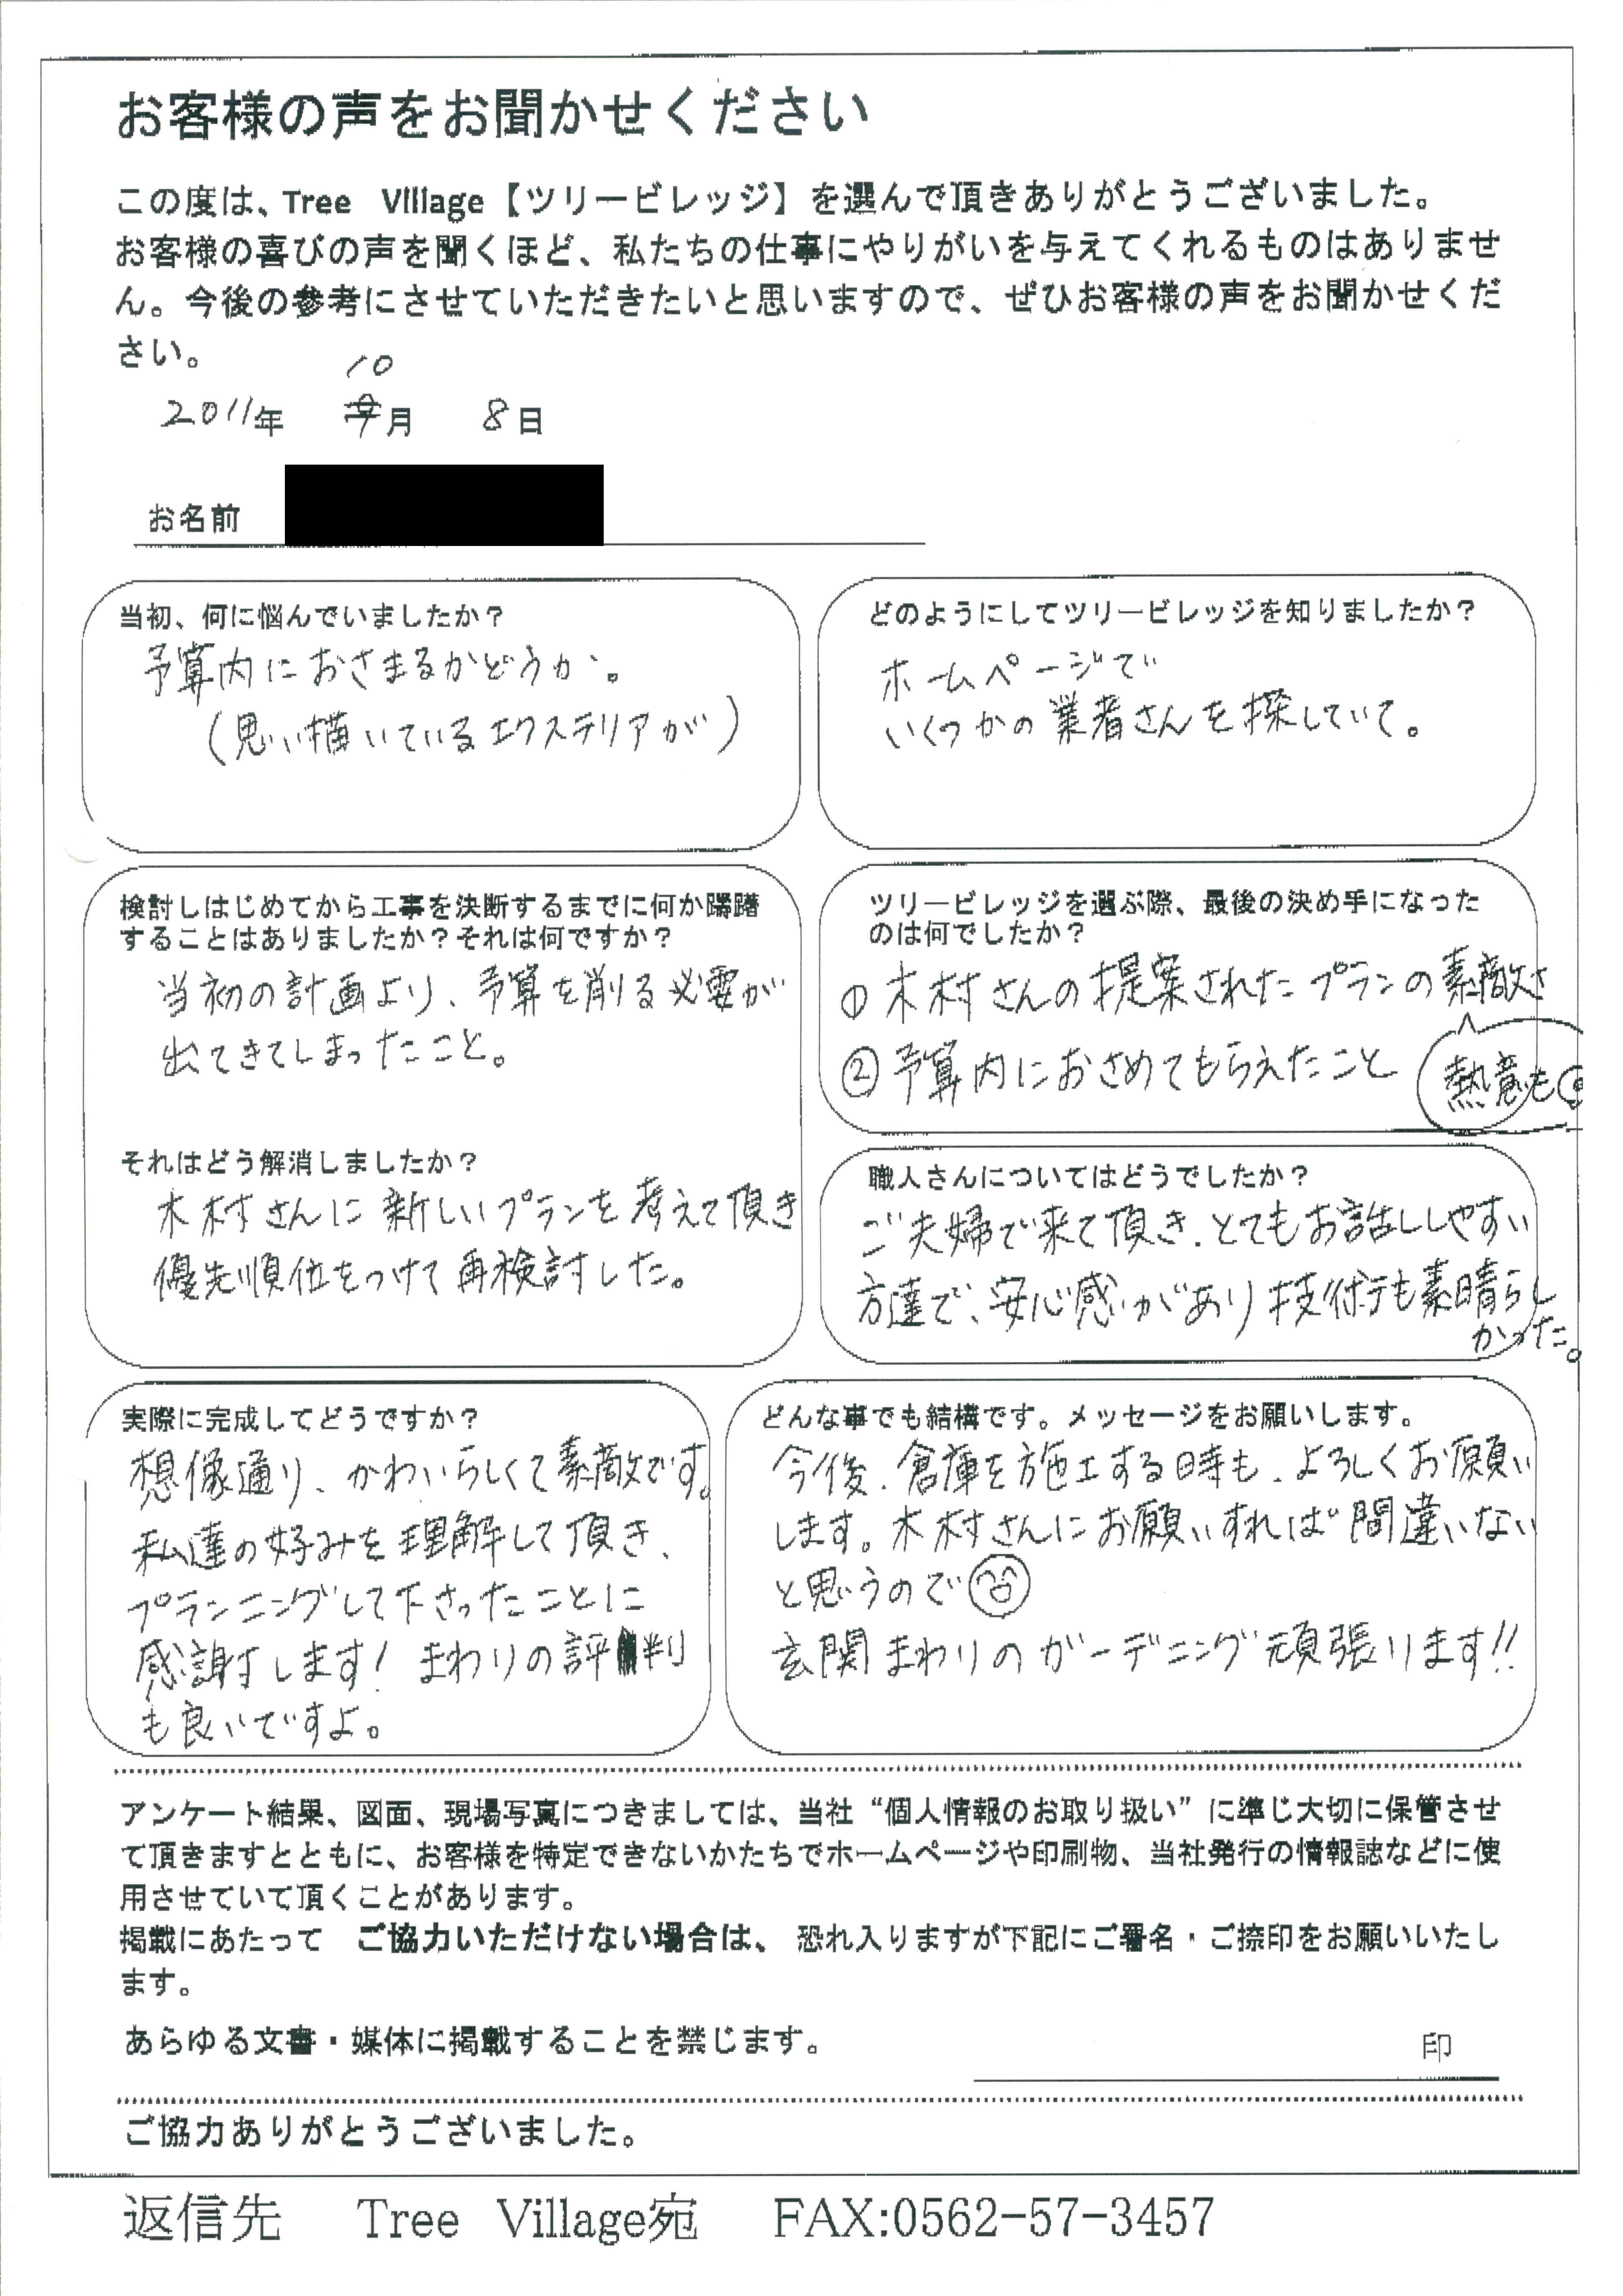 お客様の声をお聞かせください
この度は、Tree Village【ツリービレッジ】を選んで頂きありがとうございました。
お客様の喜びの声を聞くほど、私たちの仕事にやりがいを与えてくれるものはありませ
ん。今後の参考にさせていただきたいと思いますので、ぜひお客様の声をお聞かせくだ
さい。
10
2011年 9月 8日
お名前
当初、何に悩んでいましたか?
予算内におさまるかどうか。
(思い描いているエクステリアが)
どのようにしてツリービレッジを知りましたか?
ホームページで
いくつかの業者さんを探していて。
検討しはじめてから工事を決断するまでに何か躊躇
することはありましたか?それは何ですか?
当初の計画より、予算を削る必要が
出てきてしまったこと。
それはどう解消しましたか?
木村さんに新しいプランを考えて頂き
優先順位をつけて再検討した。
ツリービレッジを選ぶ際、最後の決め手になった
のは何でしたか?
① 木村さんの提案されたプランの素敵さ
② 予算内におさめてもらえたこと
熱意も
職人さんについてはどうでしたか?
ご夫婦で来て頂き、とてもお話ししやすい
方達で、安心感があり技術も素晴らし
かった。
実際に完成してどうですか?
想像通り、かわいらしくて素敵です。
私達の好みを理解して頂き、
プランニングして下さったことに
感謝します! まわりの評判
も良いですよ。
どんな事でも結構です。メッセージをお願いします。
今後、倉庫を施工する時も、よろしくお願い
します。木村さんにお願いすれば間違いない
と思うので
玄関まわりのガーデニング頑張ります!!
アンケート結果、図面、現場写真につきましては、当社“個人情報のお取り扱い”に準じ大切に保管させ
て頂きますとともに、お客様を特定できないかたちでホームページや印刷物、当社発行の情報誌などに使
用させていて頂くことがあります。
掲載にあたって ご協力いただけない場合は、恐れ入りますが下記にご署名・ご捺印をお願いいたし
ます。
あらゆる文書・媒体に掲載することを禁じます。
印
ご協力ありがとうございました。
返信先 Tree Village宛 FAX:0562-57-3457